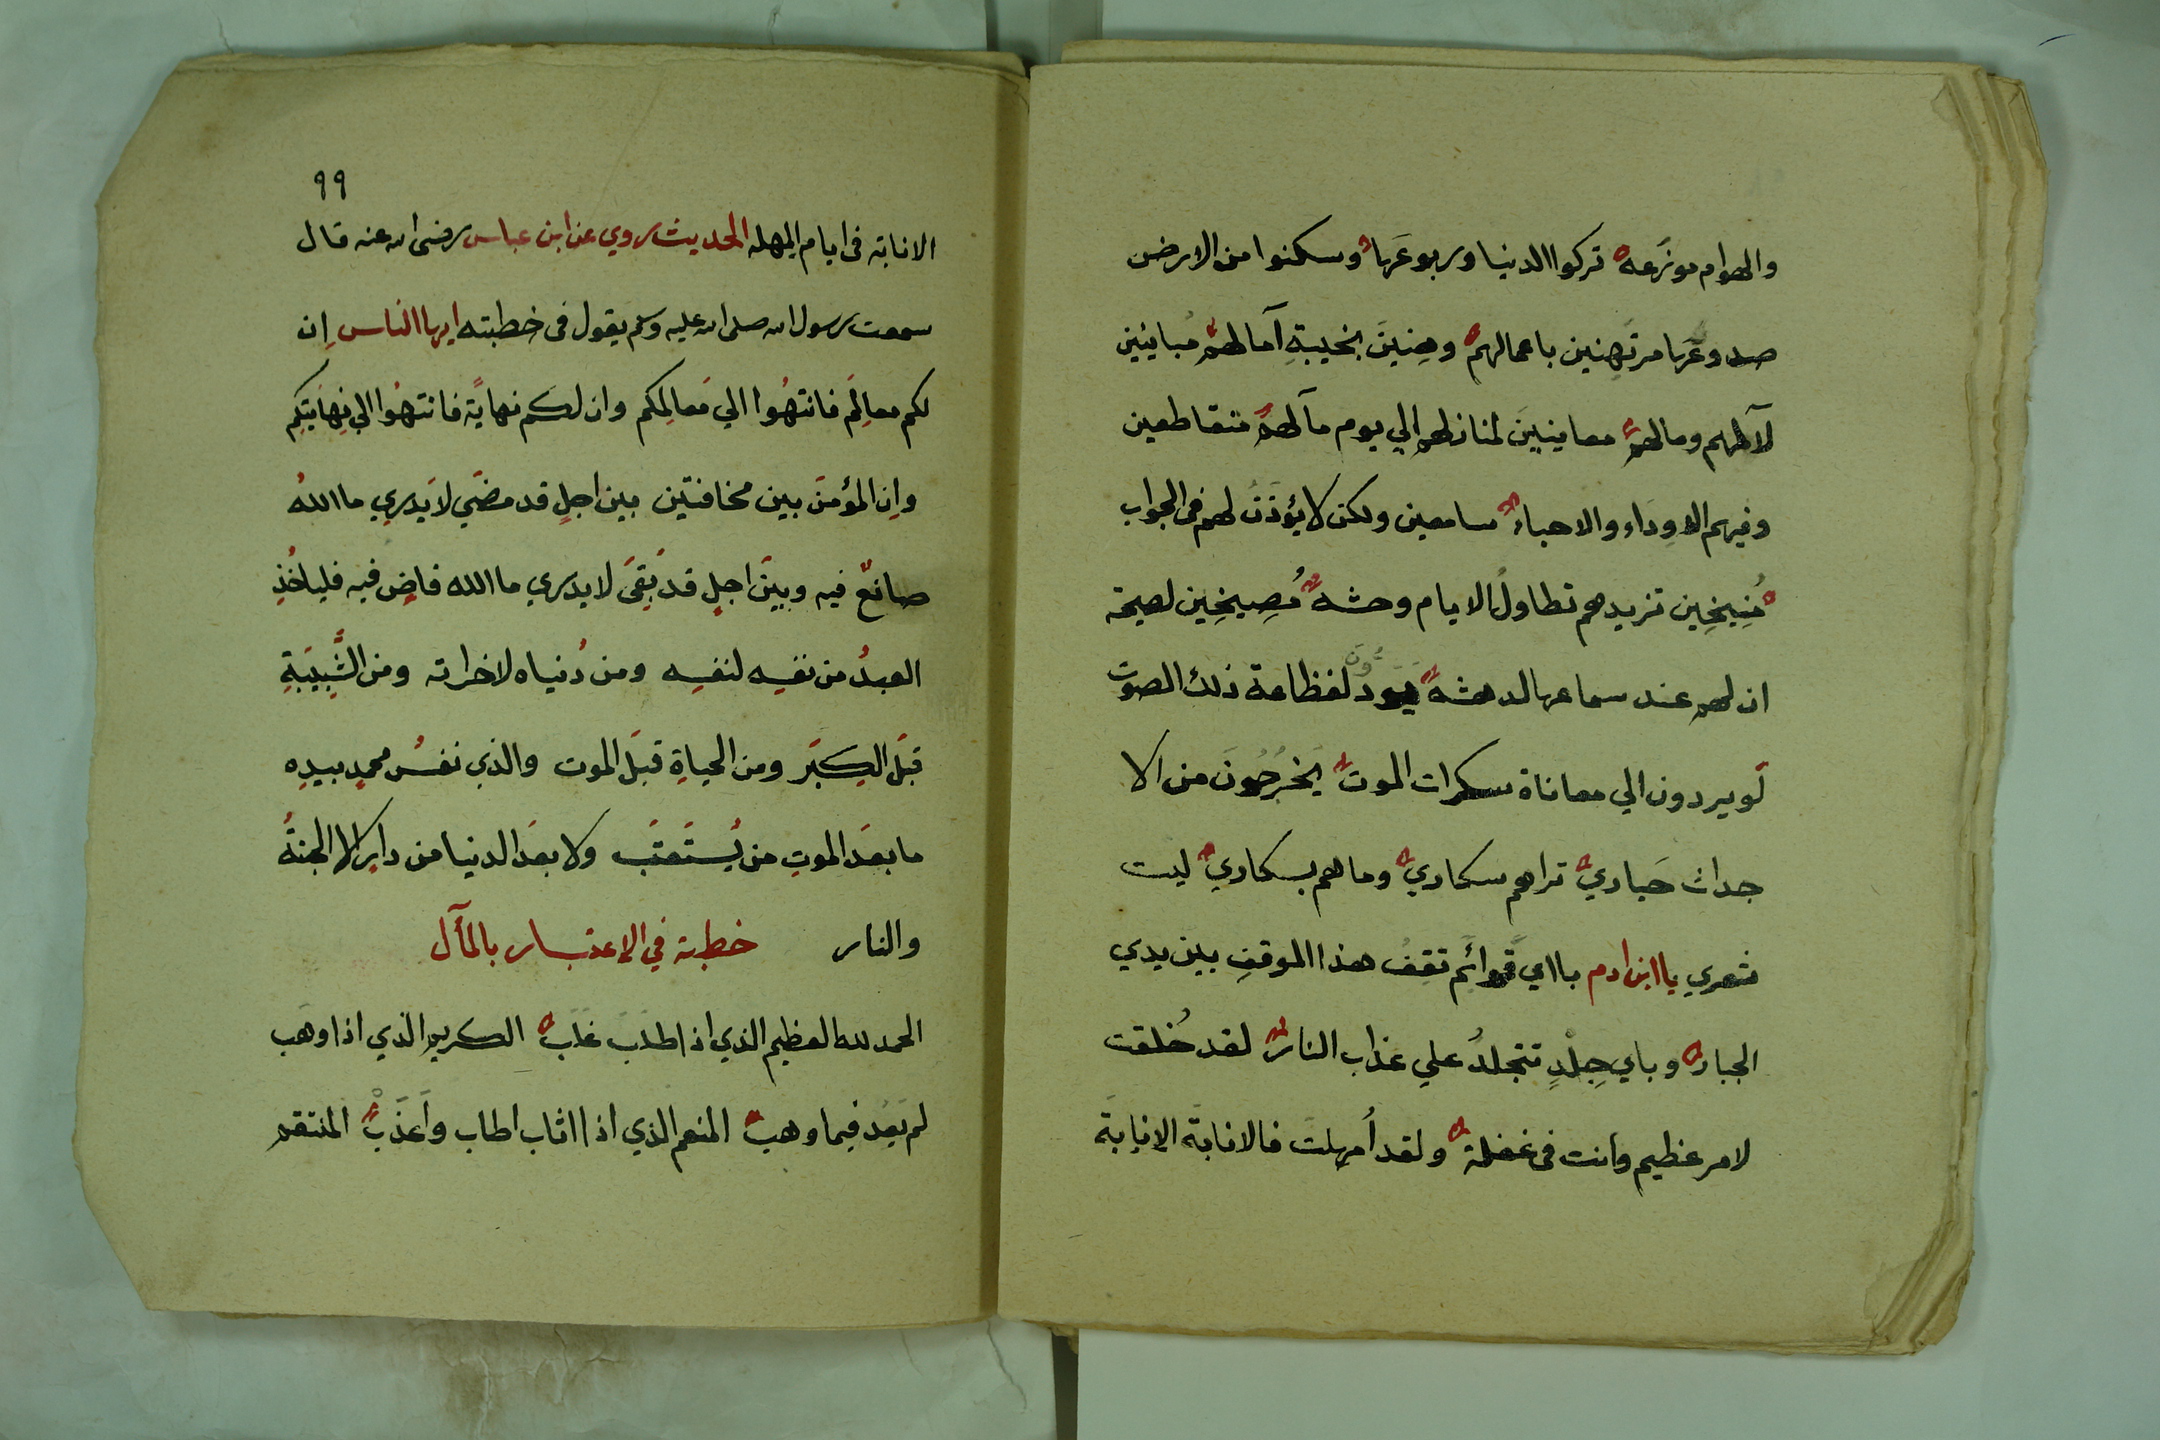 والهوام موزعه تركوا الدنيا وربوعها وسكنوا من الارض
صدوعها مرتهنين باعمالهم وهنين بخيبةِ آمالهم مباينين
لآلهم ومالهم معاينين لمنازلهم الي يوم مآلهم متقاطعين
وفيهم الاوداء والاحباء سامعين ولكن لا يؤذن لهم في الجواب
مُنِيخِين تزيدهم تطاولُ الايام وحشه مُصِيخِين لصيحة
ان لهم عند سماعها لدهشه لفظاعة ذلك الصوت
لو يردون الي معاناة سكرات الموت يَخرُجُونَ من الا
جداث حَياري تراهم سكاري وما هم بسكاري ليت
شعري يا ابن ادم باي قوائم تقِفُ هذا الموقفِ بين يدي
الجبار وباي جِلْدٍ تتجلدُ علي عذاب النار لقد خُلقت
لامر عظيم وانت في غفلة ولقد اُمهِلتَ فالانابةَ الإنابةَ
٩٩
الانابة في ايام المهله الحديث روي عن ابن عباس رضي الله عنه قال
سمعت رسول الله صلى الله عليه وسلم يقول في خطبته ايها الناس إن
لكم معالِمَ فانتهُوا الي مَعالِمِكم وان لكم نهايةً فانتهُوا الي نِهايَتِكم
وإن المؤمنَ بين مخافتين بين اجلٍ قد مضَي لا يَدرِي ما اللهُ
صانعٌ فيه وبينَ اجلٍ قد بَقِيَ لا يدري ما الله قاضٍ فيه فلياخُذِ
العبدُ من نفسِه لنفسِه ومن دُنياه لاخراته ومن الشَّبِيبَةِ
قبلَ الكِبَرِ ومن الحياةِ قبلَ الموت والذي نفسُ محمدٍ بيدِه
ما بعدَ الموتِ من يُستَعتَب ولا بعدَ الدنيا من دارٍ الا الجنةُ
والنار خطبة في الإعتبار بالمآل
الحمد لله العظيم الذي اذا طلَبَ غلَبَ الكريم الذي اذا وهَب
لم يَعُد فيما وهب المنعم الذي اذا اثاب اطاب وأعْذَبَ المنتقم